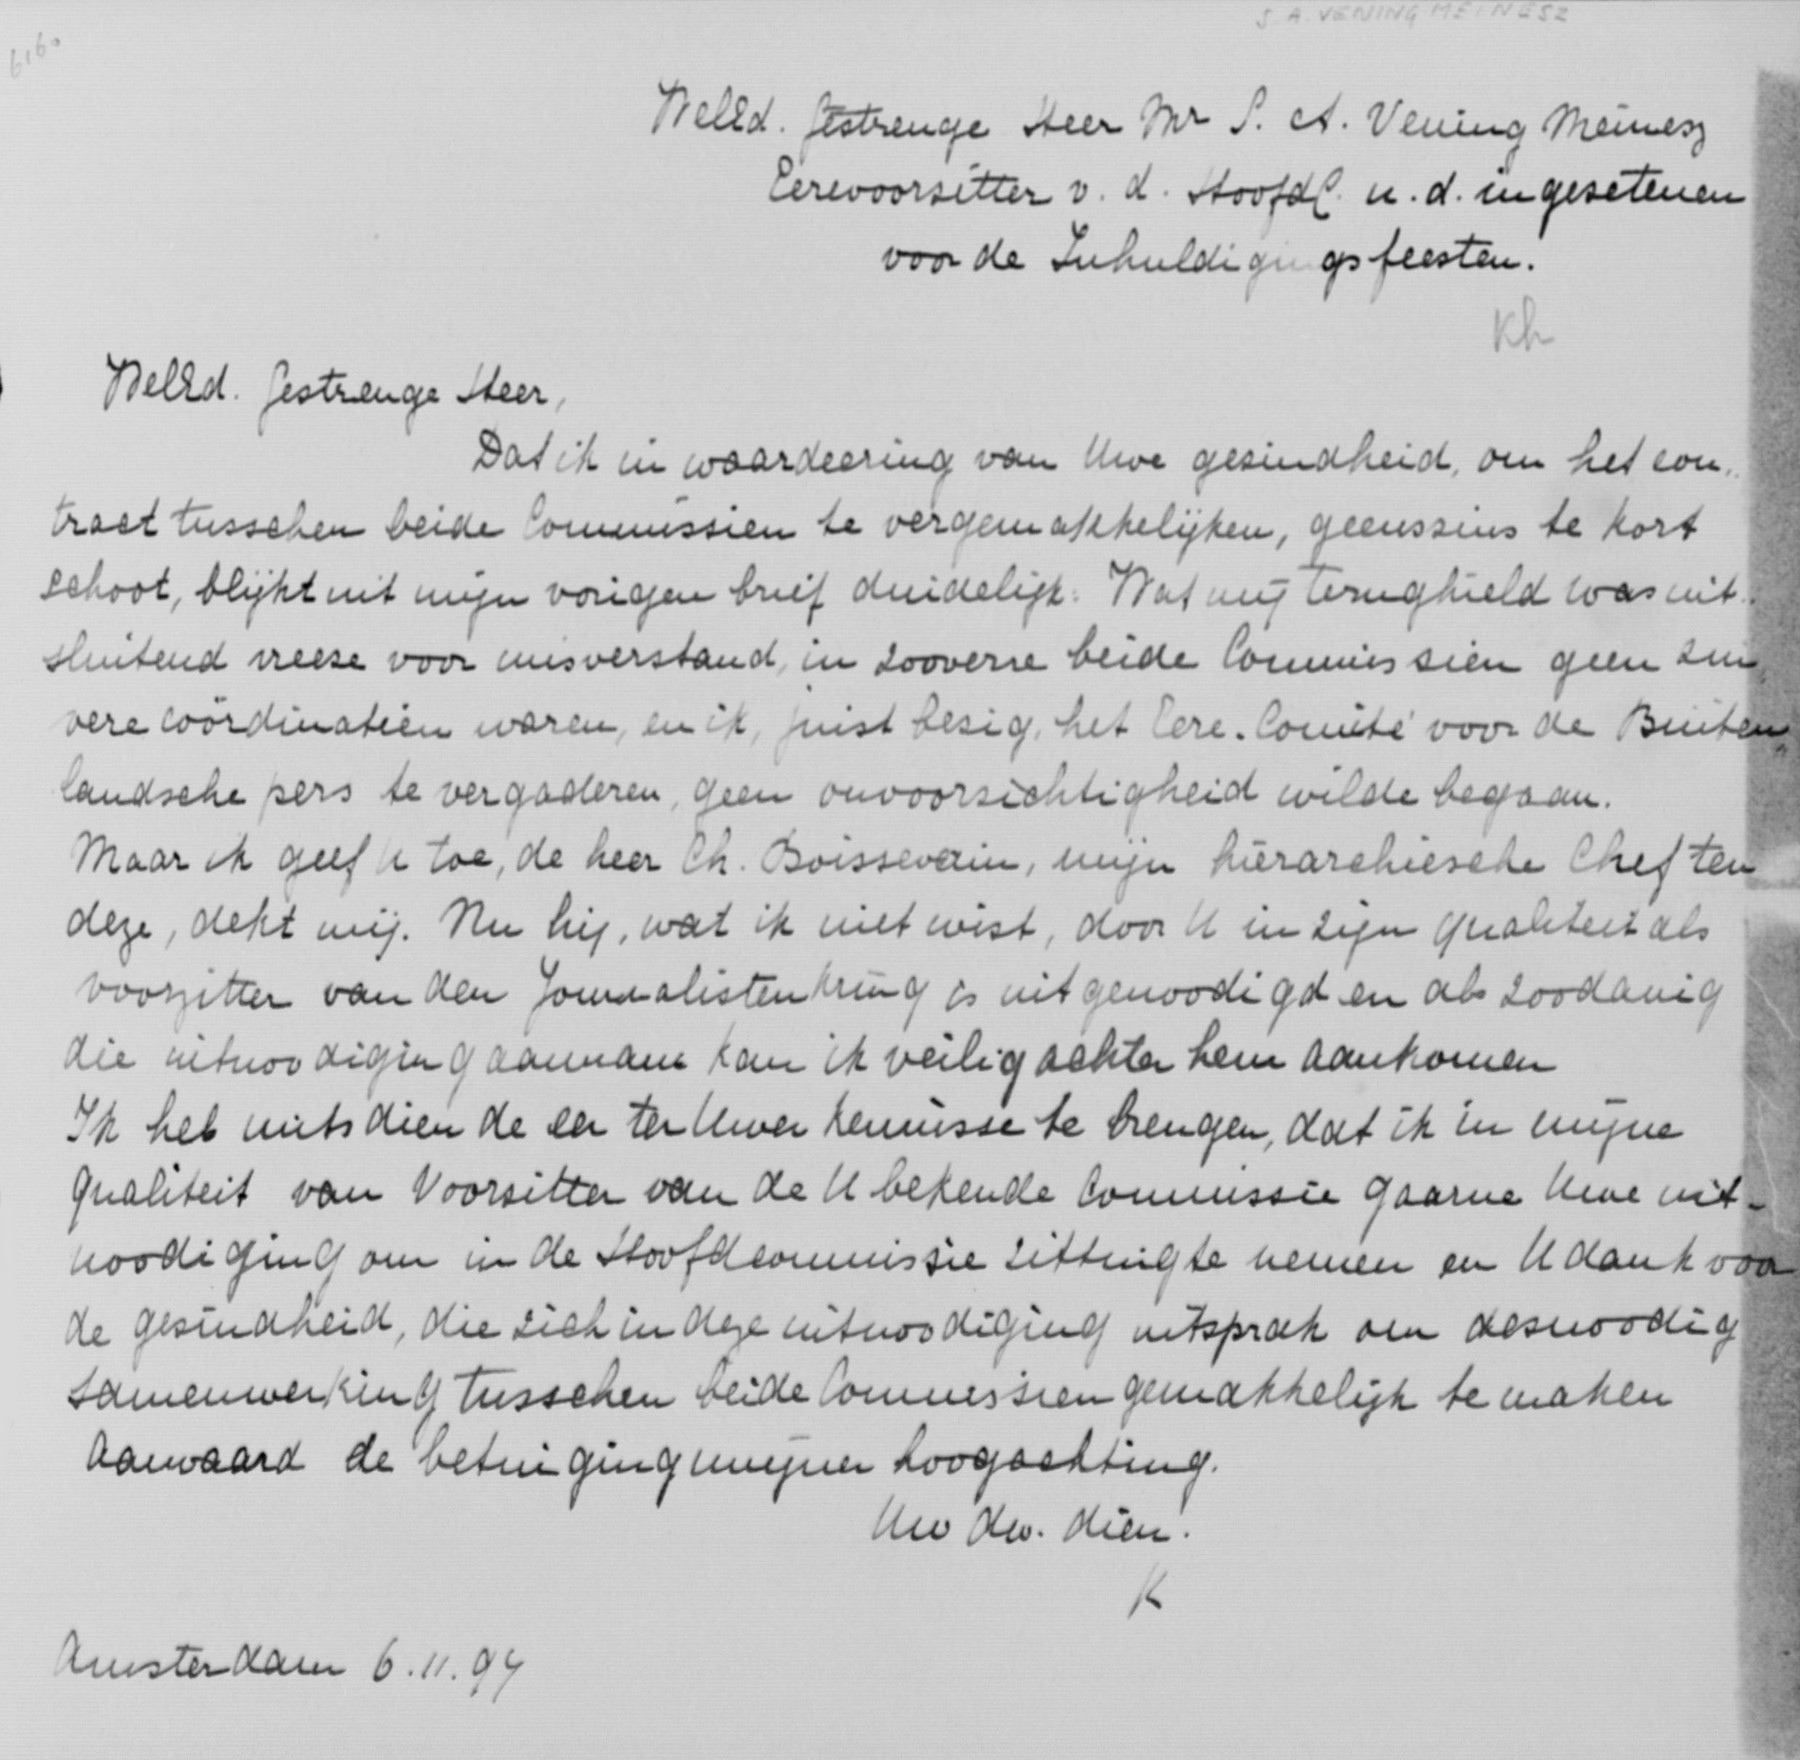 S. A. VENING MEINESZ
6160
WelEd. Gestrenge Heer Mr S. A. Vening Meinesz
Eerevoorsitter v. d. HoofdC. u. d. ingesetenen
voor de Inhuldigingsfeesten.
Kh
WelEd. Gestrenge Heer,
Dat ik in waardeering van Uwe gesindheid, om het con„
tract tusschen beide Commissien te vergemakkelijken, geenssins te kort
schoot, blijkt uit mijn vorigen brief duidelijk. Wat mij terughield was uit„
sluitend vreese voor misverstand, in zooverre beide Commissien geen zui„
vere coördinatiën waren, en ik, juist besig, het Eere-Comité voor de Buiten„
landsche pers te vergaderen, geen onvoorsichtigheid wilde begaan.
Maar ik geef U toe, de heer Ch. Boissevain, mijn hiërarchiesche Chef ten
deze, dekt mij. Nu hij, wat ik niet wist, door U in zijn qualiteit als
voorzitter van den Journalistenkring is uitgenoodigd en als zoodanig
die uitnoodiging aannam kan ik veilig achter hem aankomen
Ik heb mitsdien de eer ter Uwer kennisse te brengen, dat ik in mijne
qualiteit van Voorsitter van de U bekende Commissie gaarne Uwe uit-
noodiging om in de Hoofdcommissie zitting te nemen en U dank voor
de gesindheid, die zich in deze uitnoodiging uitsprak om desnoodig
samenwerking tusschen beide Commissien gemakkelijk te maken
Aanvaard de betuiging mijner hoogachting.
Uw dw. dien.
K
Amsterdam 6.11.97